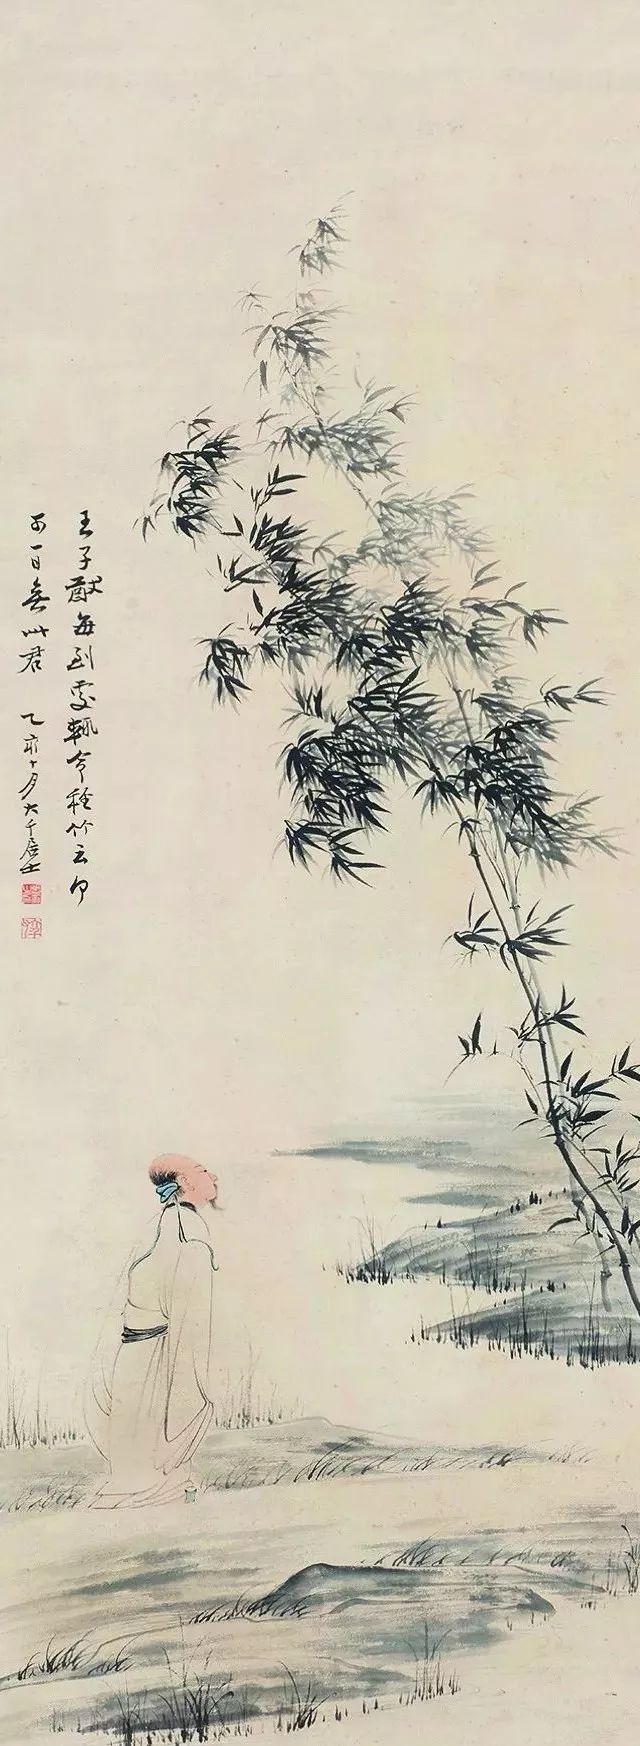 王子猷每到處輒令種竹云何
可一日無此君 乙亥十月大千居士